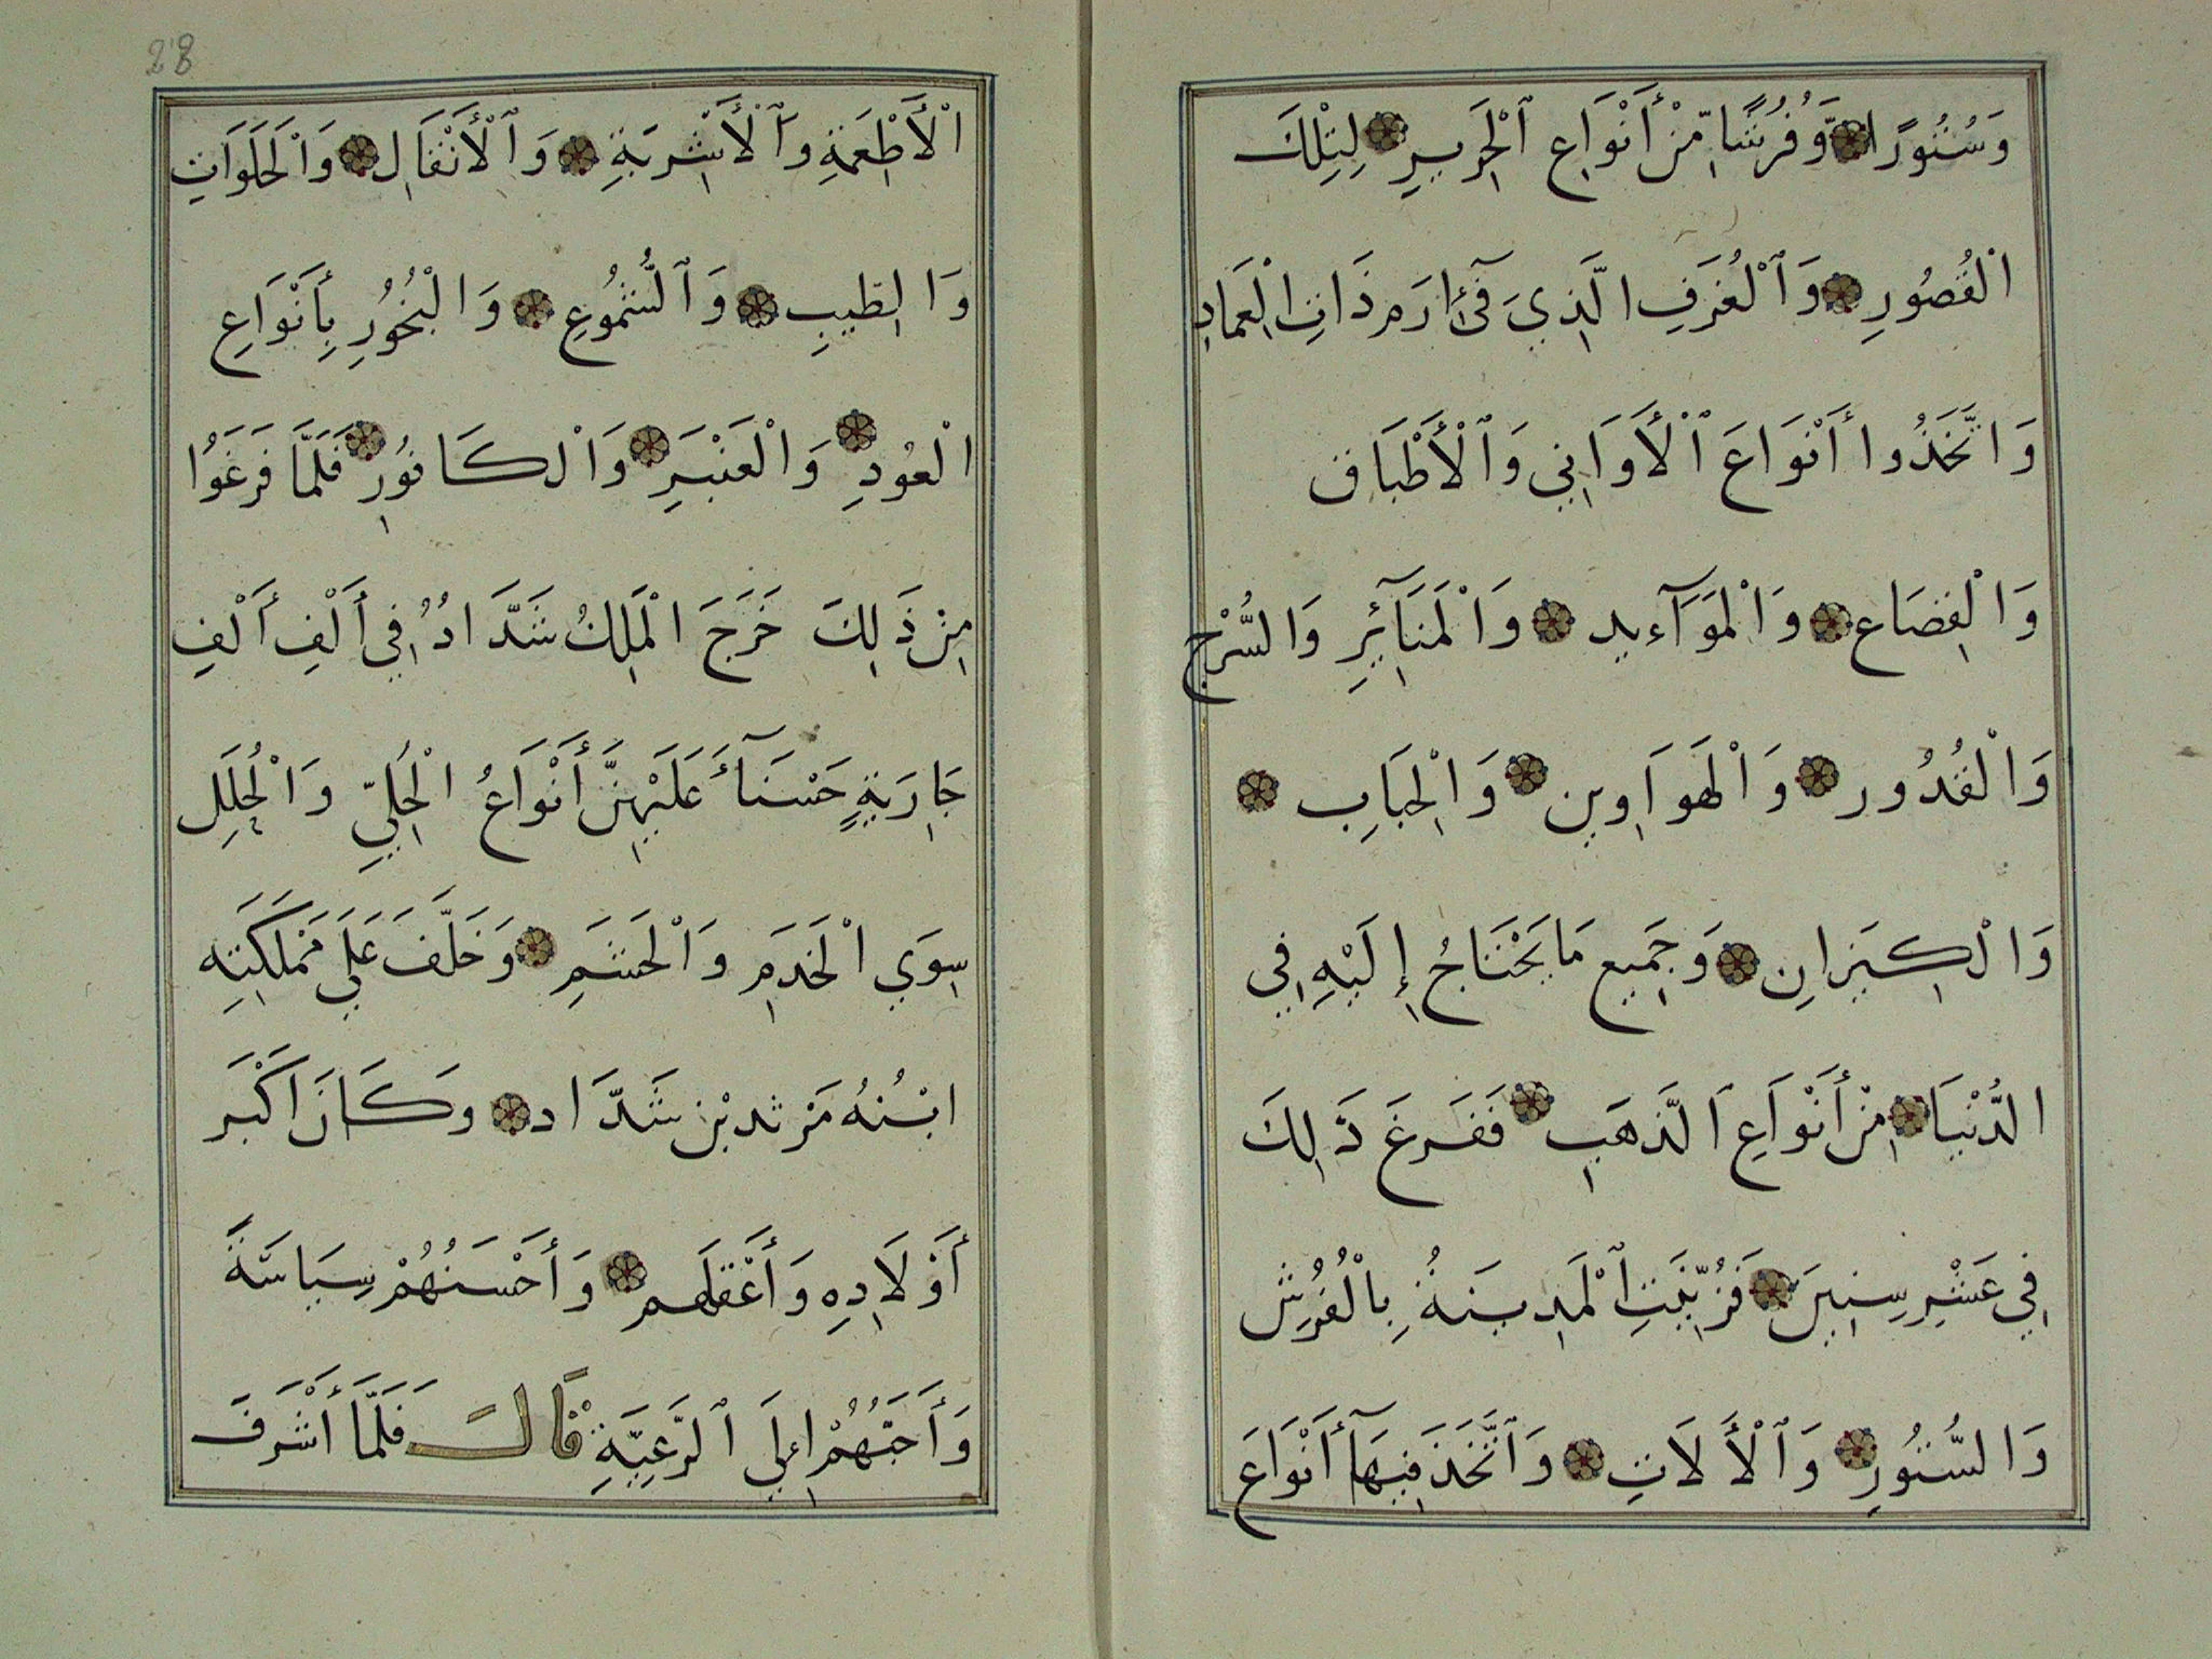 وَسُتُورًا وَّفُرُشًا مِّنْ أَنْوَاعِ ٱلْحَرِيرِ لِتِلْكَ
الْقُصُورِ وَٱلْغُرَفِ الَّذِي فَىٓ إِرَم ذَاتِ الْعِمَادِ
وَاتَّخَذُوا أَنْوَاعَ ٱلْأَوَانِي وَٱلْأَطْبَاق
وَالْقِصَاع وَالْمَوَآءيد وَالْمَنَآئِرِ وَالسُّرْج
وَالْقُدُور وَالْهَوَاوِين وَالْحِبَابِ
وَالْكِيزَانِ وَجَمِيع مَا يَحْتَاجُ إِلَيْهِ فِي
الدُّنْيَا مِنْ أَنْوَاعِ الذَّهَبِ فَفَرغَ ذَالِكَ
فِي عَشْرِ سِنِينَ فَزُيِّنَتِ ٱلْمَدِينَةُ بِالْفُرُش
وَالسُّتُورِ وَٱلْأَلَاتِ وَٱتَّخَذَ فِيهَآ أَنْوَاعَ
28
الْأَطْعِمَةِ وَٱلْأَشْرِبَةِ وَٱلْأَنْقَالِ وَالْحَلَوَاتِ
وَالطِّيبِ وَٱلشُّمُوعِ وَالْبُخُورِ بِأَنْوَاعِ
الْعُودِ وَالْعَنْبَرِ وَالْكَافُورِ فَلَمَّا فَرَغَوُا
مِنْ ذَالِكَ خَرَجَ الْمَلِكُ شَدَّادُ فِي أَلْفِ أَلْفِ
جَارِيَةٍ حَسْنَآءَ عَلَيْهِنَّ أَنْوَاعُ الْحُلِيِّ وَالْحُلَلِ
سِوَي الْخَدَمِ وَالْحَشَمِ وَخَلَّفَ عَلَي مَمْلَكَتِه
ابْنُهُ مَرْثد بْن شَدَّاد وَكَانَ اَكْبَر
أَوْلَادِهِ وَأَعْقَلَهم وَأَحْسَنُهُمْ سِيَاسَةً
وَأَحَبُّهُمْ إِلَي ٱلرَّعِيَّةِ قَالَ فَلَمَّا أَشْرَفَ